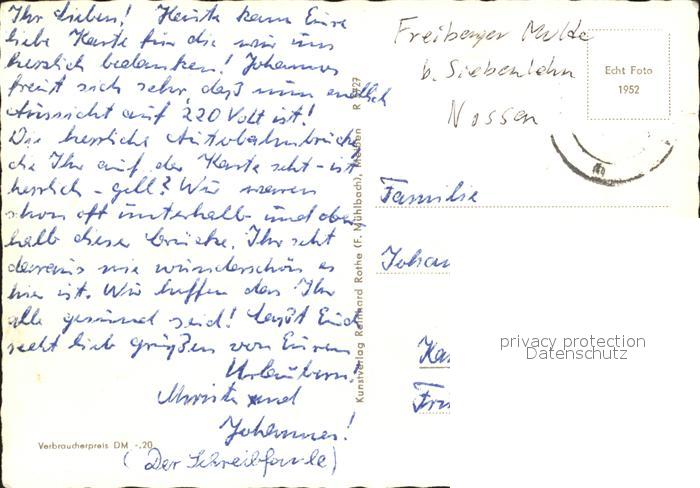 Ihr Lieben! Heute kam Eure
liebe Karte für die wir uns
herzlich bedanken! Johannes
freut sich sehr, daß nun endlich
Aussicht auf 220 Volt ist!
Die herrliche Autobahnbrücke
die Ihr auf der Karte seht - ist
herrlich - gell? Wir waren
schon oft unterhalb und ober
halb dieser Brücke. Ihr seht
daraus wie wunderschön es
hier ist. Wir hoffen das Ihr
alle gesund seid! Laßt Euch
recht lieb grüßen von Euren
Urlaubern!
und
Johannes!
(Der Schreibfaule)
Verbraucherpreis DM -,20
Kunstverlag Reinhard Rothe (F. Mühlbach), Meißen
Freiberger Mulde
b. Siebenlehn
Nossen
Echt Foto
1952
Familie
Johan
privacy protection
Datenschutz